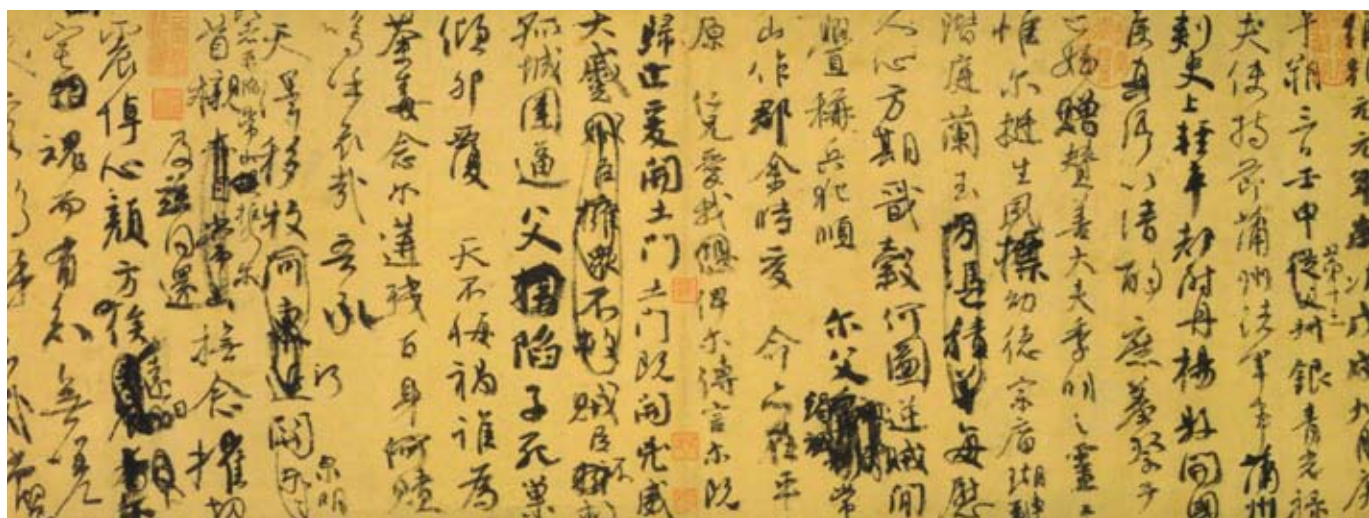 維乾元元年歲次戊戌九月庚
午朔三日壬申第十三從父叔銀青光祿
夫使持節蒲州諸軍事蒲州
刺史上輕車都尉丹楊縣開國
侯真卿以清酌庶羞祭于
亡姪贈贊善大夫季明之靈曰
惟爾挺生夙標幼德宗廟瑚璉
階庭蘭玉方憑積善每慰
人心方期戩穀何圖逆賊閒
釁稱兵犯順爾父竭誠常
山作郡余時受命亦在平
原仁兄愛我俾爾傳言爾既
歸止爰開土門土門既開凶威
大蹙賊臣擁眾不救賊臣不救
孤城圍逼父陷子死巢
傾卵覆天不悔禍誰為
荼毒念爾遘殘百身何贖
嗚呼哀哉吾承
天澤移牧河東近河關泉明
爾之比者再陷常山攜爾
首櫬及茲同還亦自常山撫念摧切
震悼心顏方俟遠日
宅魂而有知無嗟